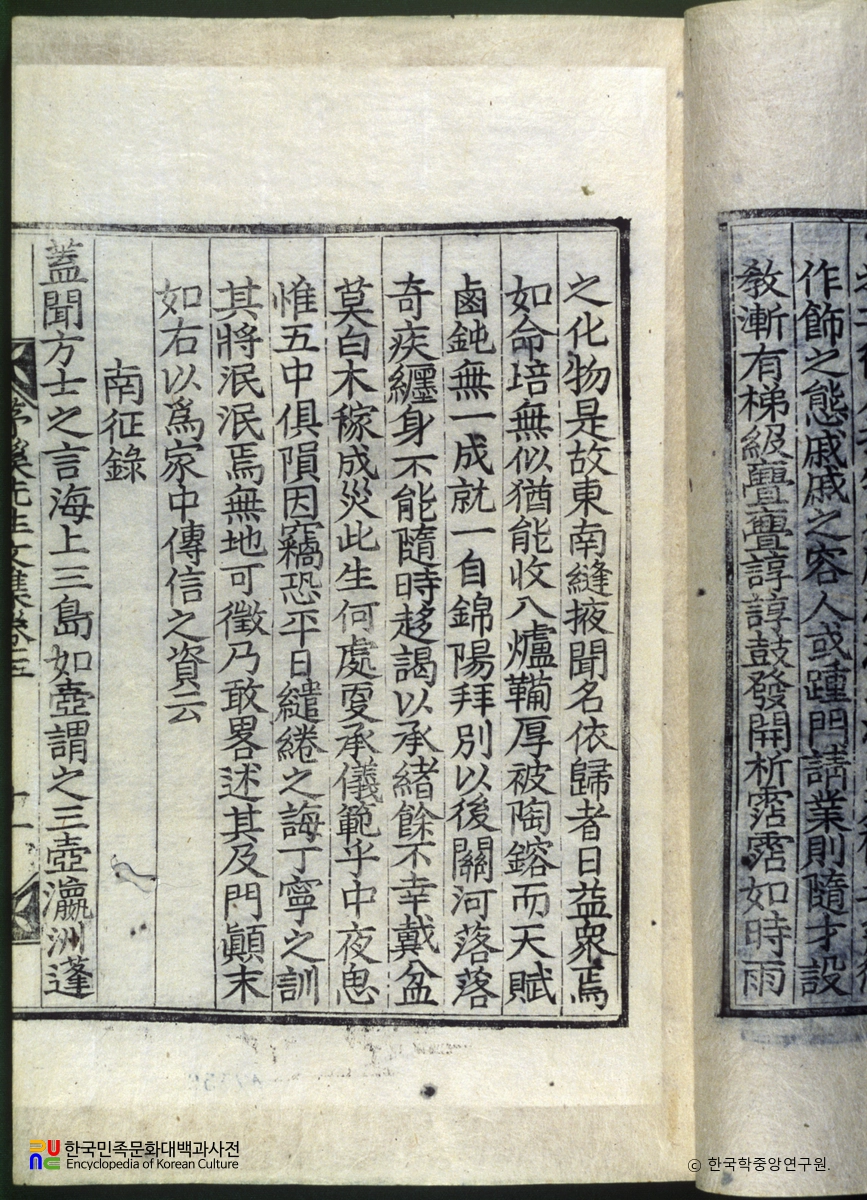 作飾之態戚戚之容人或踵門請業則隨才設
敎漸有梯級亹亹諄諄鼓發開析霑霑如時雨
之化物是故東南縫掖聞名依歸者日益衆焉
如命培無似猶能收入爐鞴厚被陶鎔而天賦
鹵鈍無一成就一自錦陽拜別以後關河落落
奇疾纏身不能隨時趍謁以承緖餘不幸戴盆
莫白木稼成災此生何處更承儀範乎中夜思
惟五中俱隕因竊恐平日繾綣之誨丁寧之訓
其將泯泯焉無地可徵乃敢畧述其及門顚末
如右以爲家中傳信之資云
南征錄
蓋聞方士之言海上三島如壺謂之三壺瀛洲蓬
한국민족문화대백과사전
Encyclopedia of Korean Culture
ⓒ 한국학중앙연구원.